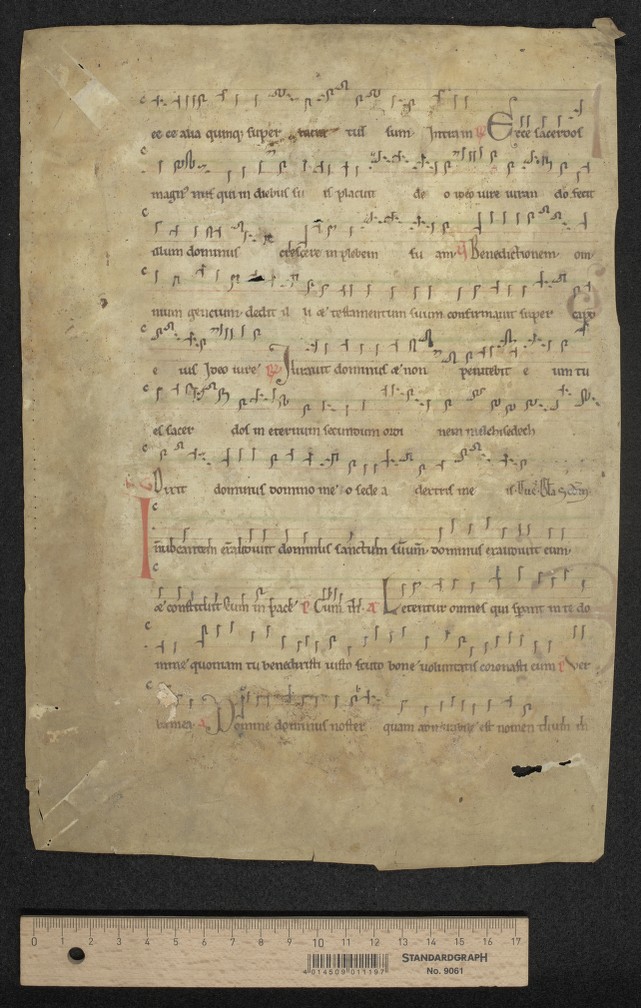 ce ce alia quinq; super sum. Intra in R Ecce sacerdos
magn' qui in diebus su is placuit de o ideo iure iuran do fecit
illum dominus crescere in plebem su am. V Benedictionem om
nium gencium dedit il li & testamentum suum confirmauit super capd
e ius Ideo iure R Iurauit dominus & non penitebit e um tu
es sacer dos in eternum secundum ordi nem melchisedech
Dixit dominus domino me o sede a dextris me is
exaudiuit dominus sanctum suum. dominus exaudiuit eum.
& constituit eum in pace Cum A Letentur omnes qui sperant in te do
mine quoniam tu benedixisti iusto scuto bone uoluntatis coronasti eum Ver
ba mea A Domine dominus noster quam est nomen tuum
0 1 2 3 4 5 6 7 8 9 10 11 12 13 14 15 16 17
4 014509 011197
STANDARDGRAPH
No. 9061